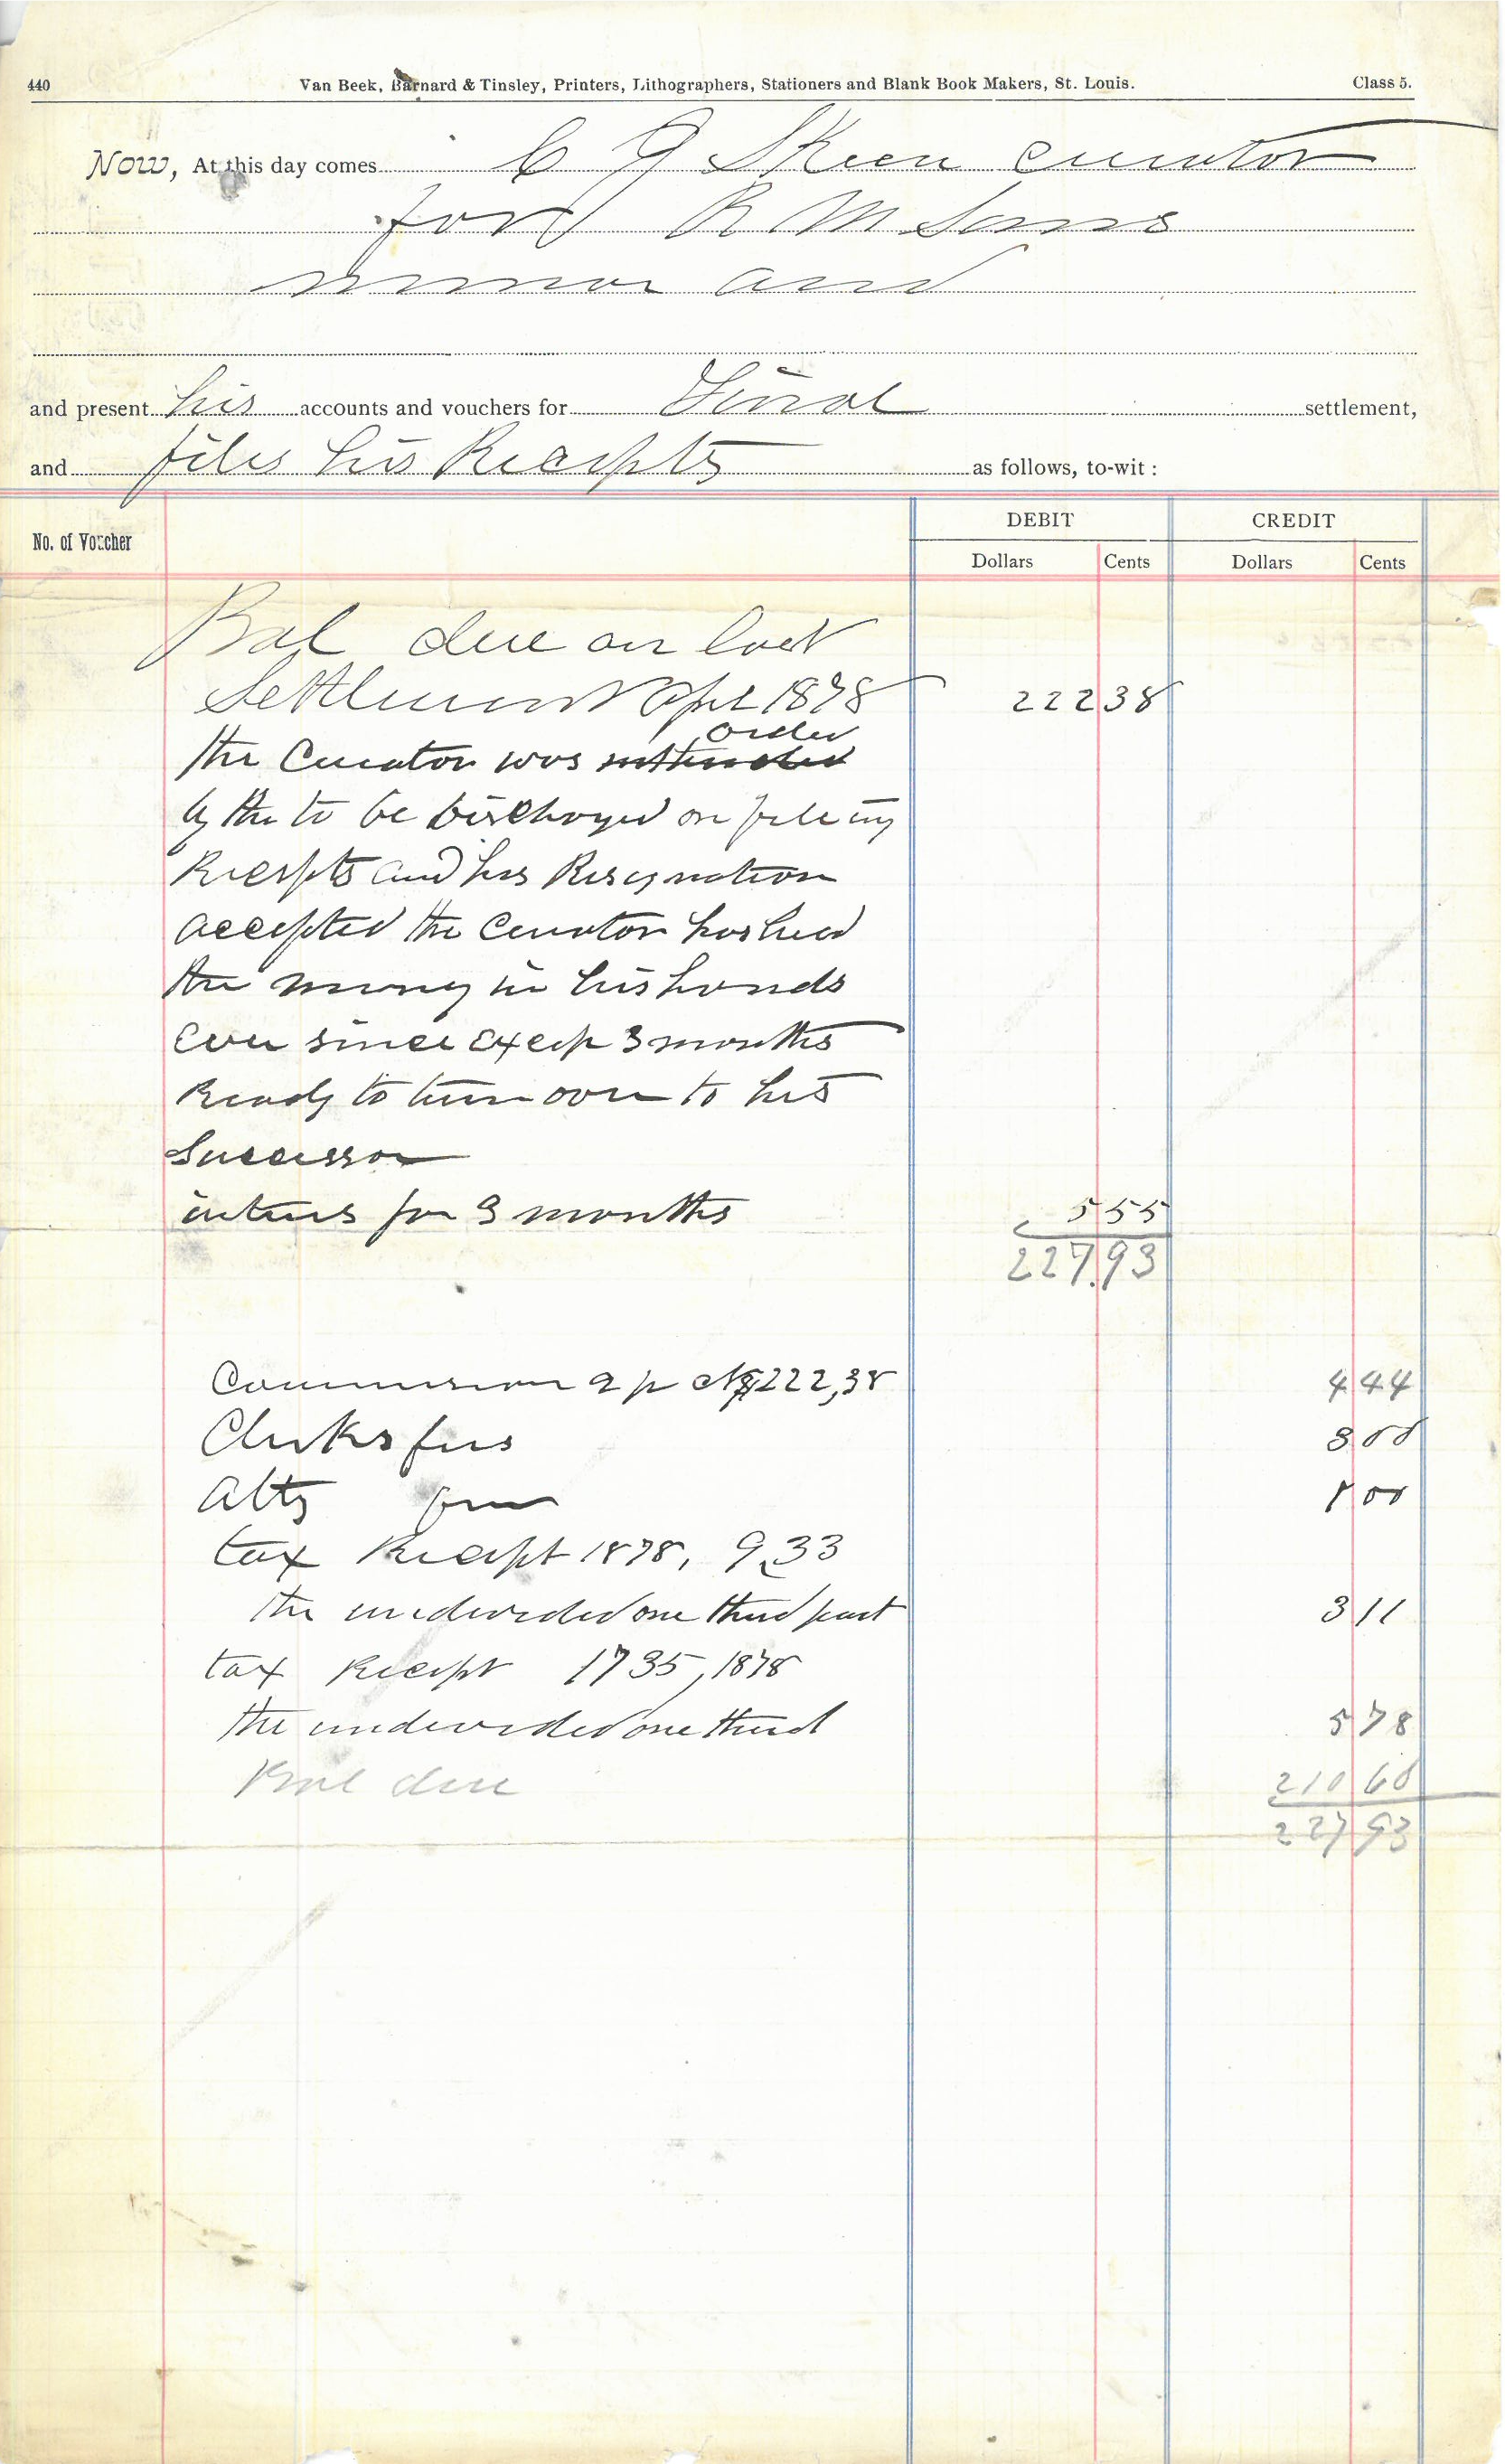 440 Van Beek, Barnard & Tinsley, Printers, Lithographers, Stationers and Blank Book Makers, St. Louis. Class 5.
Now, At this day comes C J Skeen curator
for R M Sams
minor and
and present his accounts and vouchers for Final settlement,
and files his Reciepts as follows, to-wit :
No. of Voucher DEBIT CREDIT
Dollars Cents Dollars Cents
Bal due on last
Settlement Apl 1878 222 38
order
the Curator was
by the to be Discharged on fileing
Reciepts and his Resignation
accepted the Curator has had
the money in his hands
Ever since Excep 3 months
Ready to turn over to his
Successor
interes for 3 months 5 55
227.93
Commission 2 p ct $222,38 4 44
Clerks fees 3 00
Atty fee 1 00
tax Reciept 1878, 9.33
the undevided one third part 3 11
tax Reciept 1735, 1878
the undevided one third 5 78
Bal due 210 60
227 93